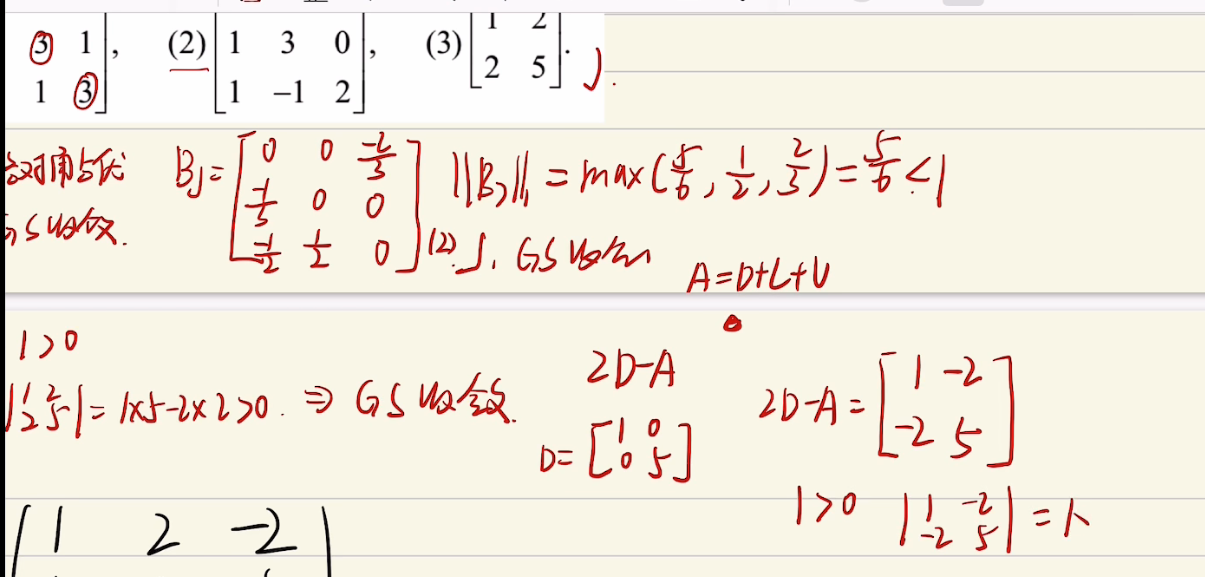 3 1], (2) [1 3 0], (3) [1 2]
1 3 [1 -1 2] [2 5].
对角占优 B_J = [0 0 -2/3; -1/3 0 0; -1/2 1/2 0] ||B_J||_1 = max(5/6, 1/2, 2/3) = 5/6 < 1
GS收敛. (2) J, GS收敛
A=D+L+U
1>0
|1 2; 2 5| = 1×5-2×2>0. ⇒ GS收敛.
2D-A
D=[1 0; 0 5]
2D-A=[1 -2; -2 5]
1>0 |1 -2; -2 5| =
1 2 -2